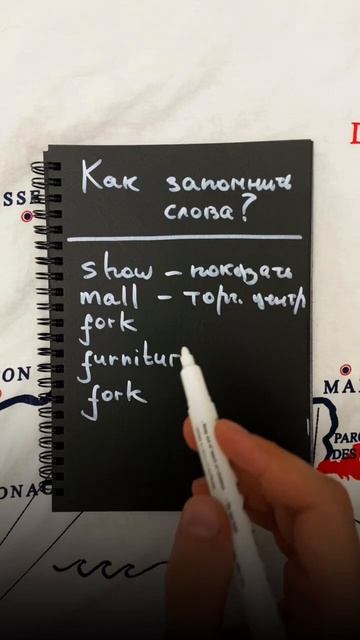 Как запомнить
слова?
show – показать
mall – торг. центр
fork
furnitur
fork
SSE
ON
ONA
MA
PARC
DES